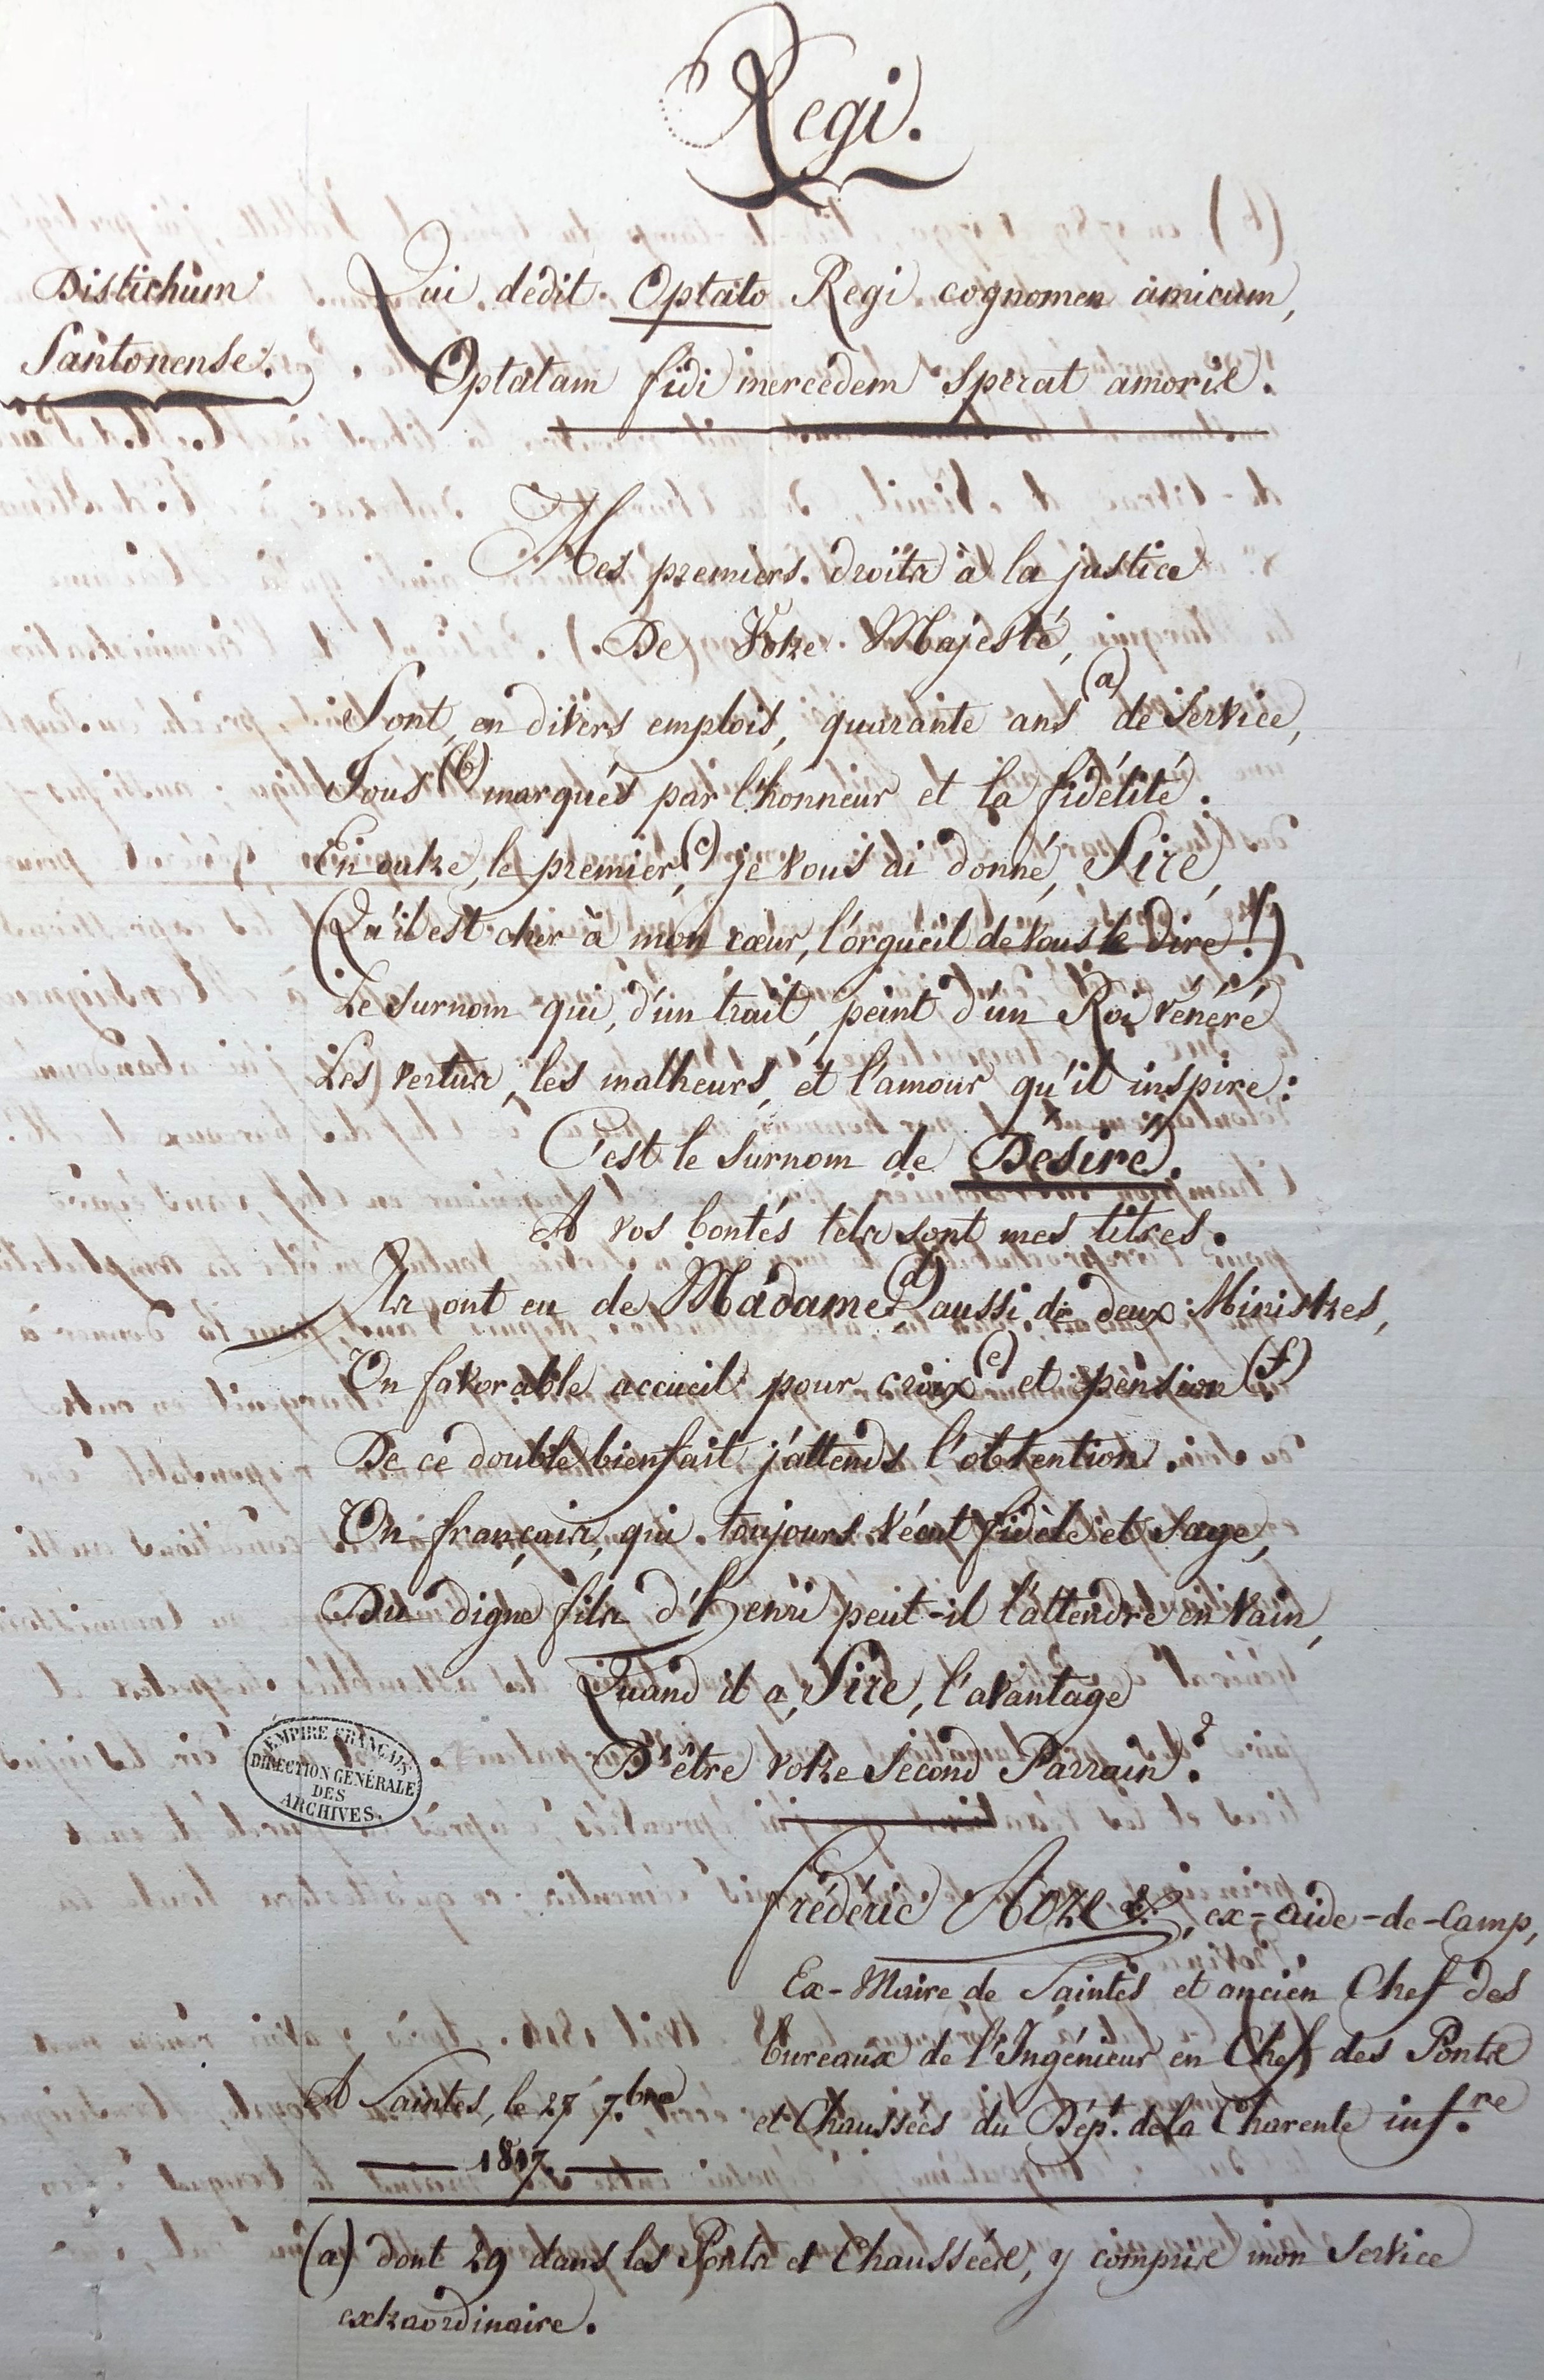 Regi.
Distichum
Santonense.
Qui dedit Optato Regi cognomen amicum,
Optatam fidi mercedem sperat amoris.
Mes premiers droits à la justice
De Votre Majesté,
Sont, en divers emplois, quarante ans (a) de service,
Tous (b) marqués par l'honneur et la fidélité.
En outre, le premier, (c) je vous ai donné, Sire,
(Qu'il est cher à mon cœur, l'orgueil de vous le dire !)
Le surnom qui, d'un trait, peint d'un Roi vénéré
Les vertus, les malheurs, et l'amour qu'il inspire :
C'est le surnom de Désiré.
A vos bontés tels sont mes titres.
Ils ont eu de Madame, (d) aussi de deux Ministres,
Un favorable accueil pour croix (e) et pension (f).
De ce double bienfait j'attends l'obtention.
Un français, qui toujours vécut fidèle et sage,
Du digne fils d'henri peut-il l'attendre en vain,
Quand il a, Sire, l'avantage
D'être votre second Parrain ?
EMPIRE FRANÇAIS
DIRECTION GÉNÉRALE
DES
ARCHIVES.
frédéric , ex-aide-de-Camp,
Ex-Maire de Saintes et ancien Chef des
bureaux de l'Ingénieur en Chef des Ponts
et Chaussées du Dép.t de la Charente inf.re
A Saintes, le 27 7.bre
1817.
(a) dont 29 dans les Ponts et Chaussées, y compris mon service
extraordinaire.